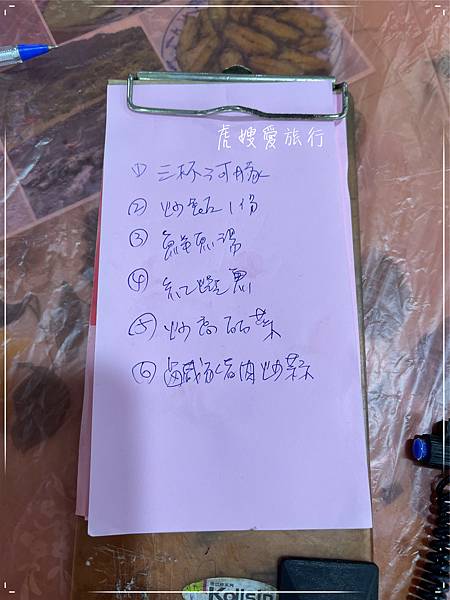 虎嫂愛旅行
① 三杯河豚
② 炒飯1份
③ 鮮魚湯
④ 紅蟳
⑤ 炒高麗菜
⑥ 鹹豬肉炒蒜
Kaisin